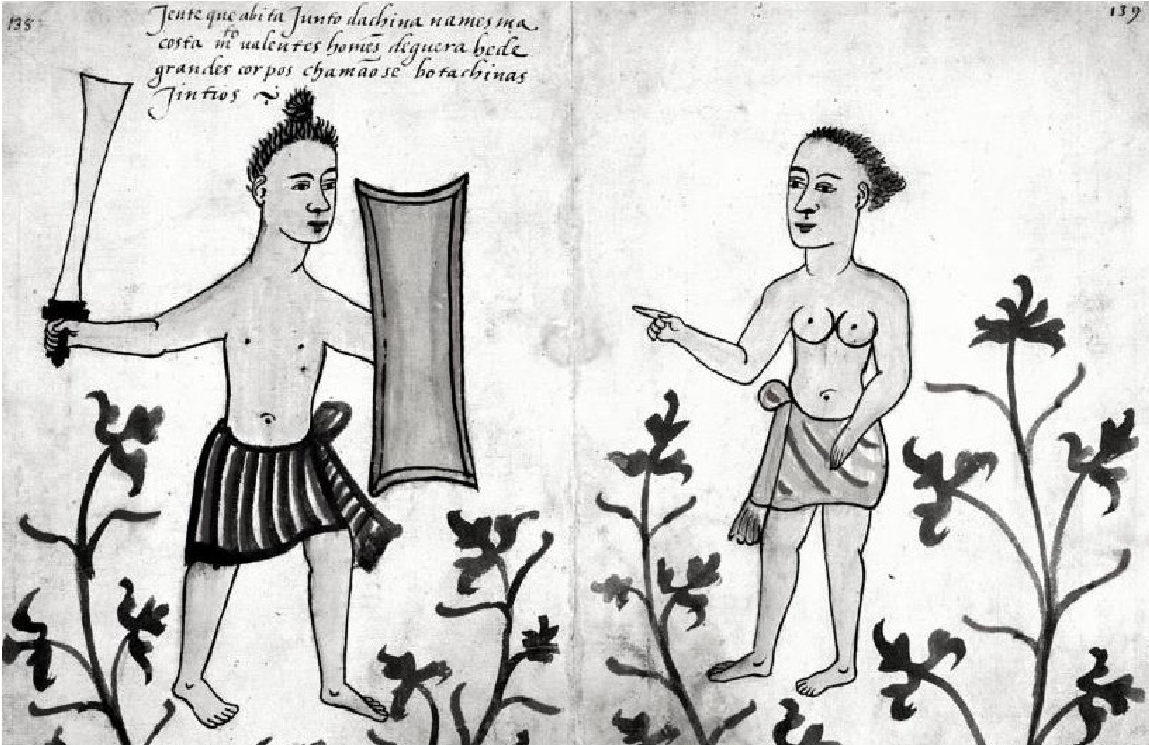 138
139
Jente que abita Junto dachina na mesma
costa mto valentes homẽs deguera hede
grandes corpos chamãose botachinas
Jintios